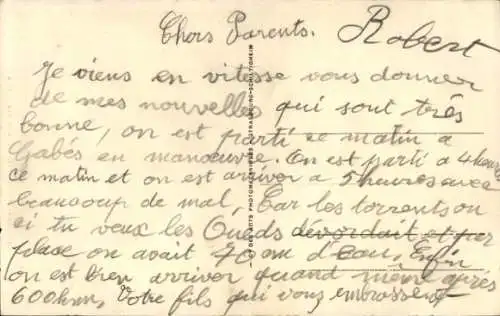 Chers Parents. Robert
Je viens en vitesse vous donner
de mes nouvelles qui sont très
bonne, on est parti se matin a
Gabés en manœuvre. On est parti a 4 heures
ce matin et on est arriver a 5 heures avec
beaucoup de mal, Car les torrents ou
si tu veux les Oueds dévordait et par
place on avait 70 cm d'eau, Enfin
on est bien arriver quand même après
600 km, Votre fils qui vous embrassent